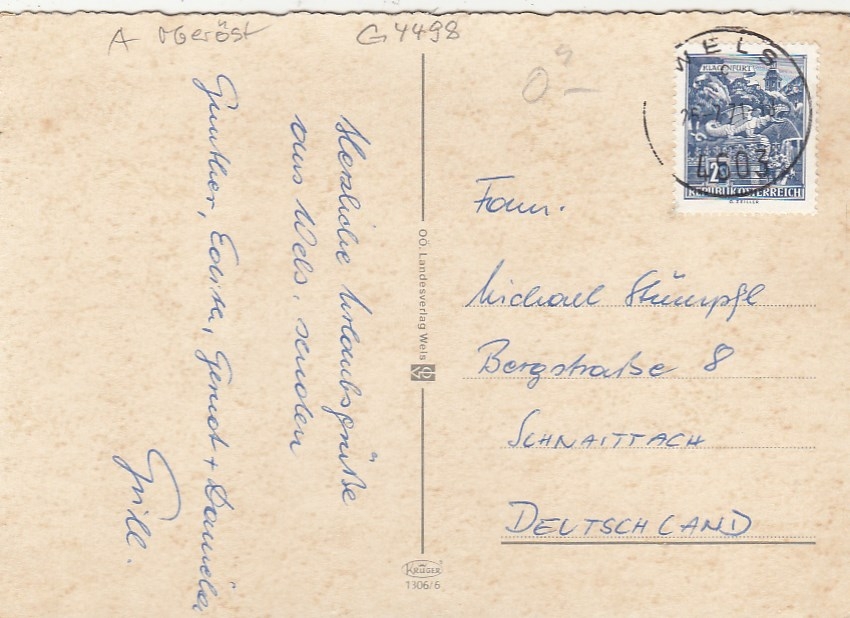 A Oberöst
G 4498
Herzliche Urlaubsgrüße
aus Wels, senden
Gunther, Edita, Gernot + Daniela
Grill.
OÖ. Landesverlag Wels
KRÜGER
1306/6
WELS
4603
KLAGENFURT
2
REPUBLIK ÖSTERREICH
Fam.
Michael Stümpfl
Bergstraße 8
SCHNAITTACH
DEUTSCHLAND